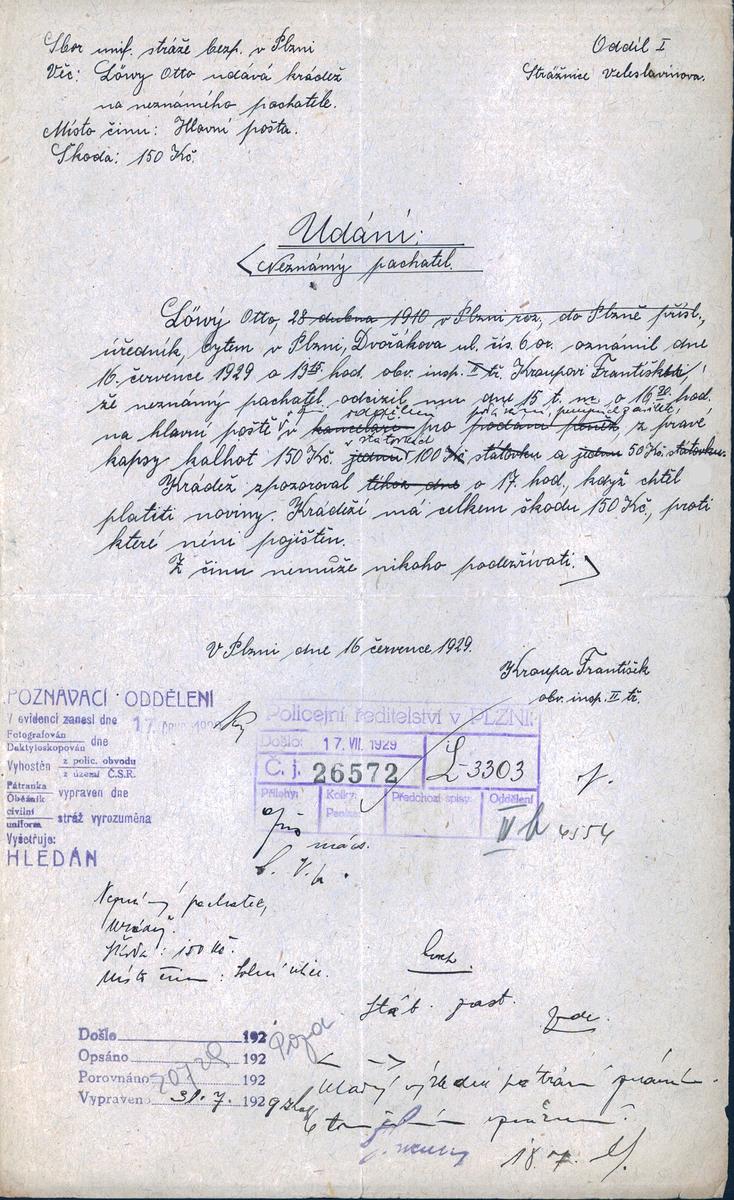 Sbor unif. stráže bezp. v Plzni
Oddíl I
Věc: Löwy Otto udává krádež
Strážnice Veleslavínova.
na neznámého pachatele.
Místo činu: Hlavní pošta.
Škoda: 150 Kč.
Udání:
Neznámý pachatel.
Löwy Otto, 28 dubna 1910 v Plzni roz., do Plzně přísl.,
úředník, bytem v Plzni, Dvořákova ul. čís. 6 or. oznámil dne
16. července 1929 o 19 15 hod. obv. insp. II tř. Kroupovi Františkovi,
že neznámý pachatel odcizil mu dne 15 t. m. o 16 30 hod.
oddělení
na hlavní poště v kanceláře pro podání peněz, z pravé
v státovkách
kapsy kalhot 150 Kč. jednu 100 Kč státovku a jednu 50 Kč státovku.
Krádež zpozoroval téhož dne o 17 hod., když chtěl
platiti noviny. Krádeží má celkem škodu 150 Kč., proti
které není pojištěn.
Z činu nemůže nikoho podezřívati.
V Plzni dne 16 července 1929.
Kroupa František
obv. insp. II tř.
POZNÁVACÍ ODDĚLENÍ
V evidenci zanesl dne 17
Fotografován
Daktyloskopován dne
Vyhostěn z polic. obvodu
z území Č.S.R.
Pátranka
Oběžník vypraven dne
civilní
uniform stráž vyrozuměna
Vyšetřuje:
HLEDÁN
Policejní ředitelství v PLZNI.
Došlo: 17. VII. 1929
Č. j. 26572
L-3303
Přílohy: Kolky: Předchozí spisy: Oddělení
Peníze:
IV b 4554
Neznámý pachatel,
krádež.
Škoda: 150 Kč.
Místo činu: Solní ulice.
Došlo 192
Opsáno 192
Porovnáno 192
20729
Vypraveno 31. 7. 1929
18. 7.